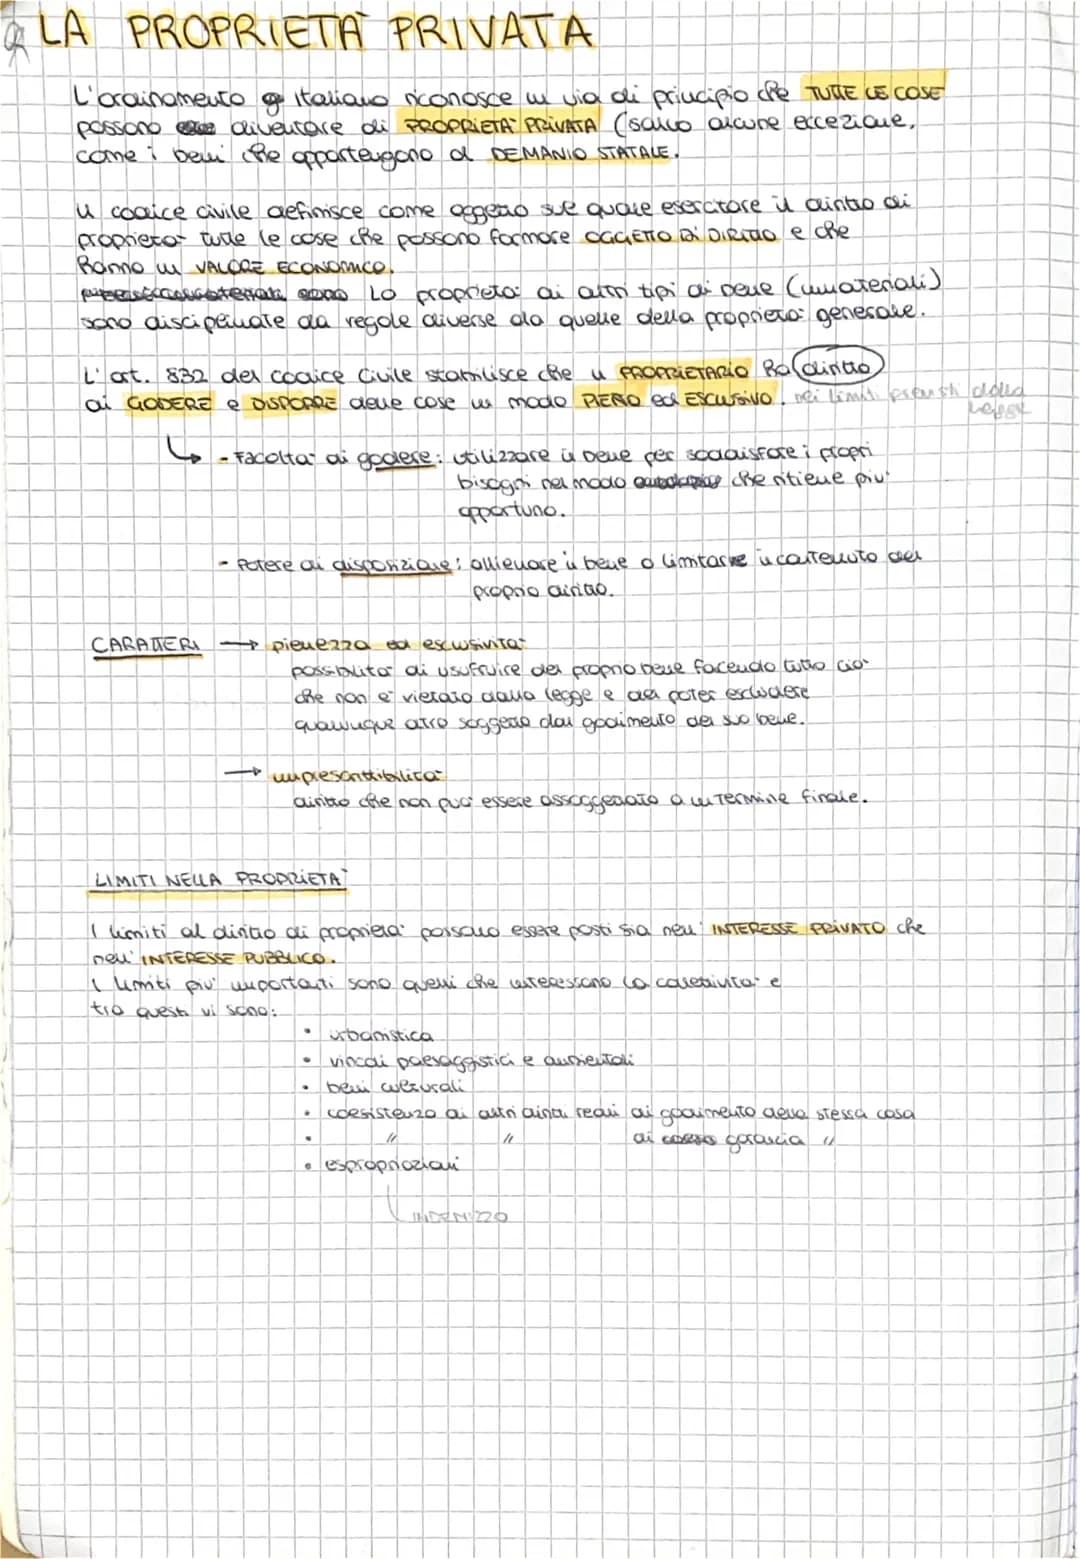 LA PROPRIETÀ PRIVATA
L'ordinamento italiano riconosce in via di principio che TUTTE LE COSE
possono diventare di PROPRIETA' PRIVATA (salvo alcune eccezione,
come i beni che appartengono al DEMANIO STATALE.
Il codice civile definisce come oggetto sul quale esercitare il diritto di
proprietà tutte le cose che possono formare OGGETTO DI DIRITTO e che
hanno un VALORE ECONOMICO.
La proprietà di altri tipi di bene (immateriali)
sono disciplinate da regole diverse da quelle della proprietà generale.
L'art. 832 del codice civile stabilisce che il PROPRIETARIO ha diritto
di GODERE e DISPORRE delle cose in modo PIENO ed ESCLUSIVO. nei limiti previsti dalla
legge
- Facoltà di godere: utilizzare il bene per soddisfare i propri
bisogni nel modo che ritiene più
opportuno.
- Potere di disposizione: allienare il bene o limitare il contenuto del
proprio diritto.
CARATTERI → pienezza ed esclusività
possibilità di usufruire del proprio bene facendo tutto ciò
che non è vietato dalla legge e del poter escludere
qualunque altro soggetto dal godimento del suo bene.
→ imprescrittibilità
diritto che non può essere assoggettato a un termine finale.
LIMITI NELLA PROPRIETÀ
I limiti al diritto di proprietà possono essere posti sia nell'INTERESSE PRIVATO che
nell'INTERESSE PUBBLICO.
I limiti più importanti sono quelli che interessano la collettività e
tra questi vi sono:
• urbanistica
• vincoli paesaggistici e ambientali
• beni culturali
• coesistenza di altri diritti reali di godimento della stessa cosa
• " " di garanzia "
• espropriazioni
INDENIZZO